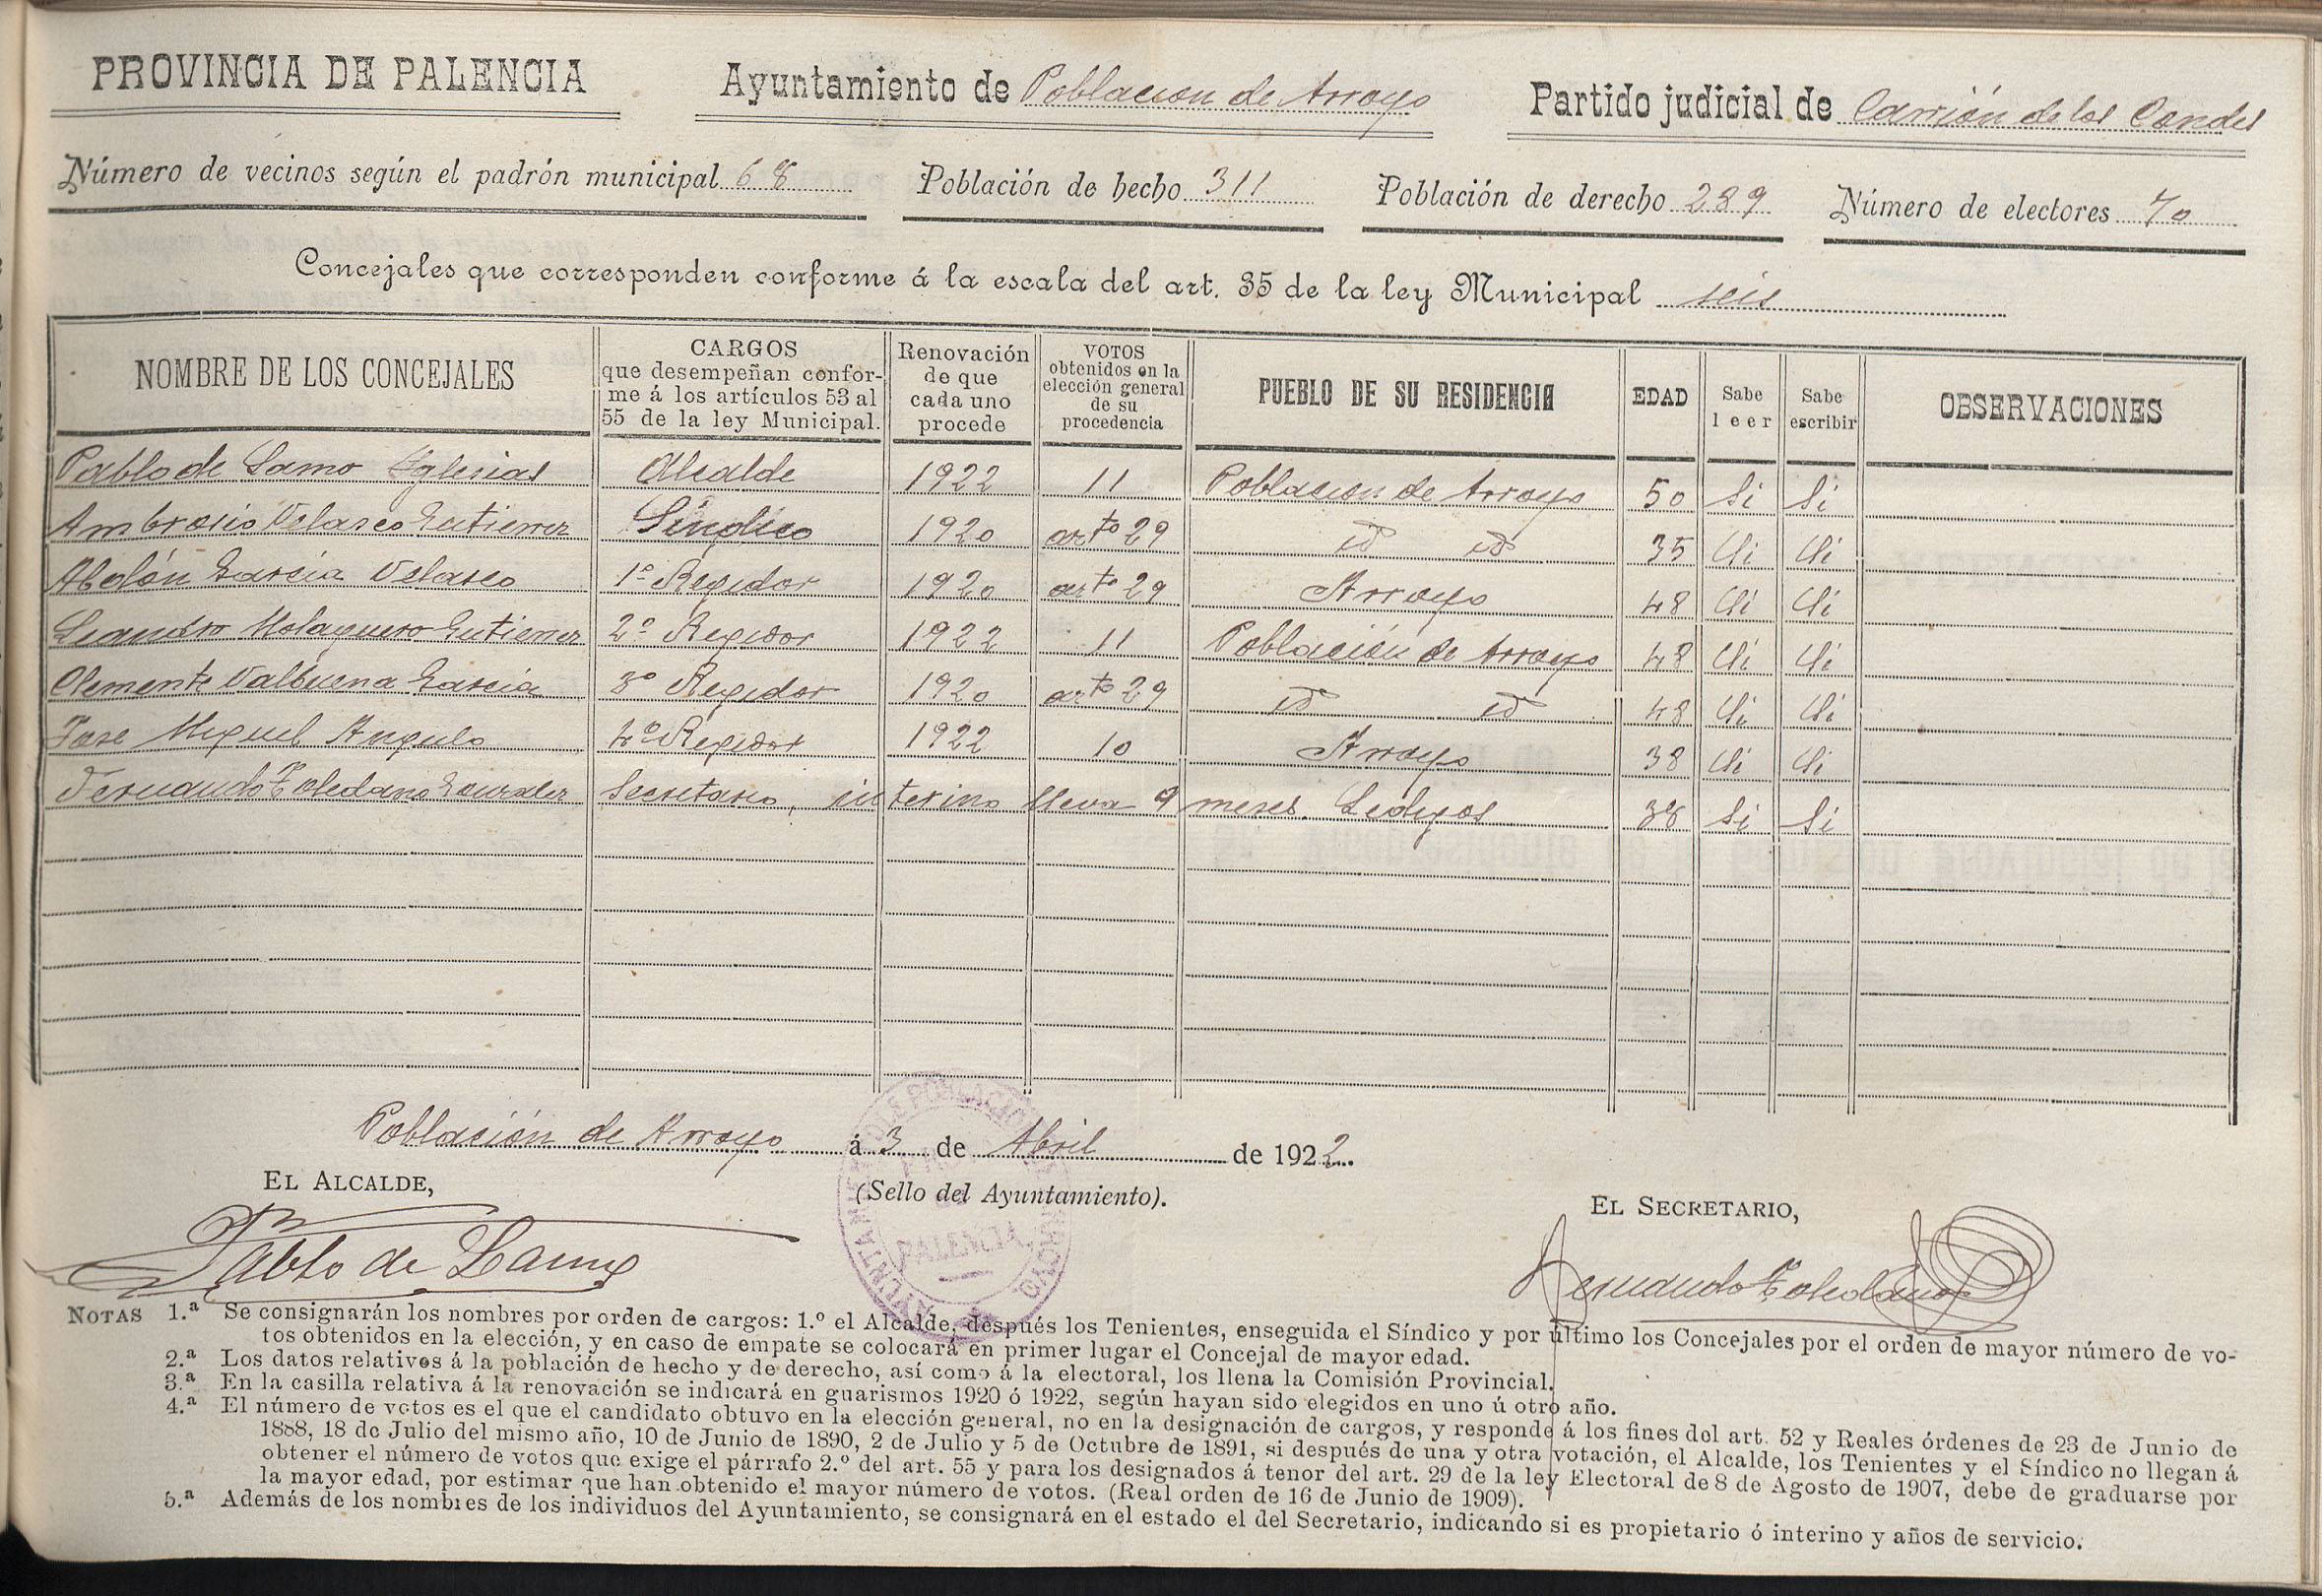 PROVINCIA DE PALENCIA Ayuntamiento de Poblacion de Arroyo Partido judicial de Carrión de los Condes
Número de vecinos según el padrón municipal 68 Población de hecho 311 Población de derecho 289 Número de electores 70
Concejales que corresponden conforme á la escala del art. 35 de la ley Municipal seis
NOMBRE DE LOS CONCEJALES
CARGOS
que desempeñan confor-
me á los artículos 53 al
55 de la ley Municipal.
Renovación
de que
cada uno
procede
VOTOS
obtenidos en la
elección general
de su
procedencia
PUEBLO DE SU RESIDENCIA
EDAD
Sabe
leer
Sabe
escribir
OBSERVACIONES
Pablo de Lamo Iglesias Alcalde 1922 11 Poblacion de Arroyo 50 Si Si
Ambrosio Velasco Gutierrez Sindico 1920 arto 29 id id 35 Si Si
Abelón Garcia Velasco 1º Regidor 1920 arto 29 Arroyo 48 Si Si
Leandro Molaguero Gutierrez 2º Regidor 1922 11 Población de Arroyo 48 Si Si
Clemente Valbuena Garcia 3º Regidor 1920 arto 29 id id 48 Si Si
Jose Miguel Angulo 4º Regidor 1922 10 Arroyo 38 Si Si
Fernando Toledano Gonzalez Secretario, interino lleva 9 meses. Ledigos 38 Si Si
Población de Arroyo á 3 de Abril de 1922.
EL ALCALDE,
(Sello del Ayuntamiento).
EL SECRETARIO,
AYUNTAMIENTO DE POBLACION DE ARROYO
PALENCIA
Pablo de Lamo
Fernando Toledano
NOTAS 1.ª Se consignarán los nombres por orden de cargos: 1.º el Alcalde, después los Tenientes, enseguida el Síndico y por último los Concejales por el orden de mayor número de vo-
tos obtenidos en la elección, y en caso de empate se colocará en primer lugar el Concejal de mayor edad.
2.ª Los datos relativos á la población de hecho y de derecho, así como á la electoral, los llena la Comisión Provincial.
3.ª En la casilla relativa á la renovación se indicará en guarismos 1920 ó 1922, según hayan sido elegidos en uno ú otro año.
4.ª El número de votos es el que el candidato obtuvo en la elección general, no en la designación de cargos, y responde á los fines del art. 52 y Reales órdenes de 23 de Junio de
1888, 18 de Julio del mismo año, 10 de Junio de 1890, 2 de Julio y 5 de Octubre de 1891, si después de una y otra votación, el Alcalde, los Tenientes y el Síndico no llegan á
obtener el número de votos que exige el párrafo 2.º del art. 55 y para los designados á tenor del art. 29 de la ley Electoral de 8 de Agosto de 1907, debe de graduarse por
la mayor edad, por estimar que han obtenido el mayor número de votos. (Real orden de 16 de Junio de 1909).
5.ª Además de los nombres de los individuos del Ayuntamiento, se consignará en el estado el del Secretario, indicando si es propietario ó interino y años de servicio.